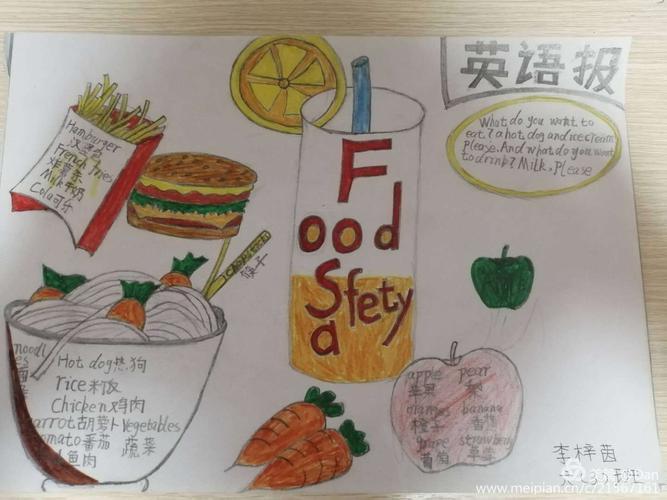 英语报
What do you want to
eat? a hot dog and ice cream
Please. And what do you want
to drink? Milk, Please
Hamburger
汉堡包
French fries
炸薯条
Milk 牛奶
Cola 可乐
Food
Safety
筷子
noodl
es
Hot dog 热狗
rice 米饭
Chicken 鸡肉
carrot 胡萝卜 Vegetables
tomato 番茄 蔬菜
鱼肉
apple pear
苹果 梨
banana
橙子 香蕉
grape strawberry
葡萄 草莓
李梓茵
www.meipian.cn/c/21567161